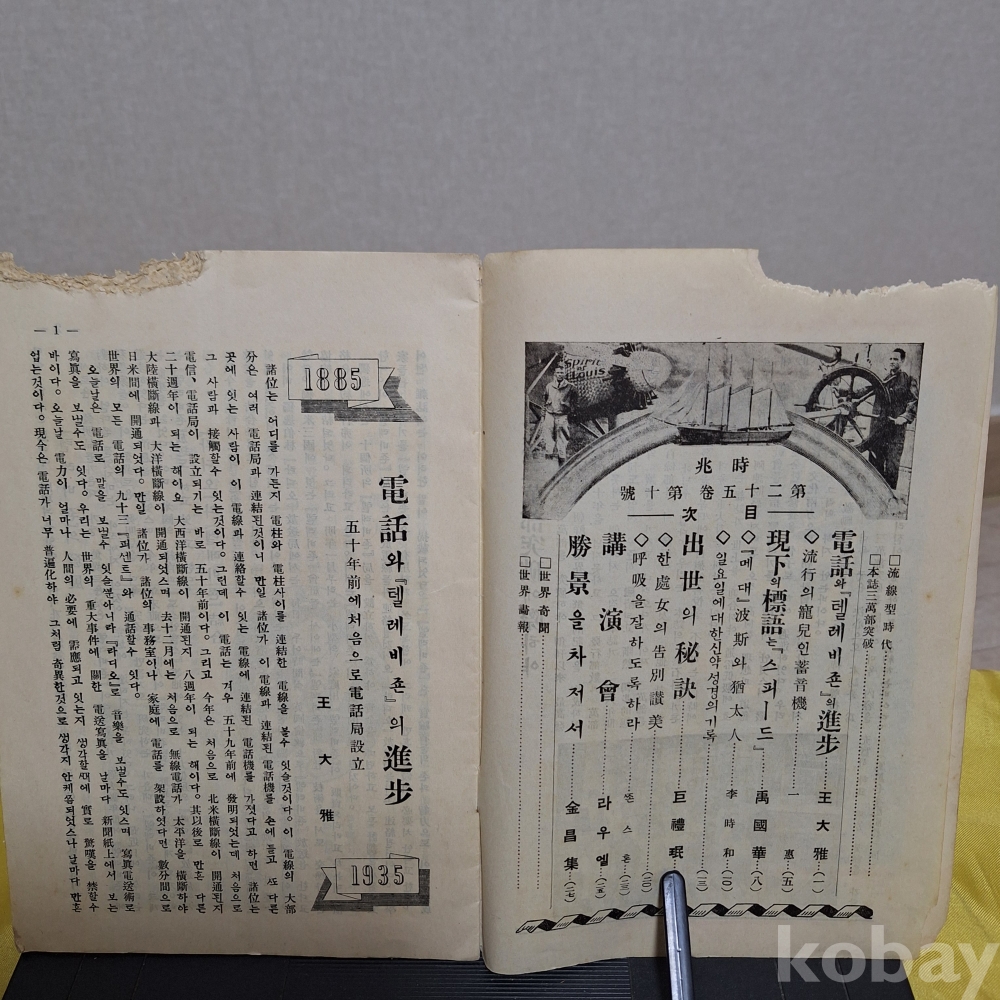 Spirit
of
St. Louis
時兆
第二十五卷第十號
目次
□流線型時代
□本誌三萬部突破
電話와『텔레비죤』의進步 王大雅 (一)
◇流行의寵兒인蓄音機 一惠 (五)
現下의標語는『스피ー드』 禹國華 (八)
◇『메대』波斯와猶太人 李時和 (一〇)
◇일요일에대한신약성경의기록 (一二)
出世의秘訣 巨禮珉
◇한處女의告別讃美 (二〇)
◇呼吸을잘하도록하라 쬰스혼 (二三)
講演會 라우엘 (二五)
勝景을차저서 金昌集 (二七)
□世界奇聞
□世界畵報
1885
電話와『텔레비죤』의進步
五十年前에처음으로電話局設立
王大雅
1935
諸位는 어디를 가든지 電柱와 電柱사이를 連結한 電線을 볼수 잇슬것이다。이 電線의 大部
分은 여러 電話局과 連結된것이니 만일 諸位가 이 電線과 連結된 電話機를 가젓다고 하면 諸位는
곳에 잇는 사람이 이 電線과 連絡할수 잇는 電線에 連結된 電話機를 손에 들고 또 다른
그 사람과 接觸할수 잇는것이다。그런데 이 電話는 겨우 五十九年前에 發明되엿는데 처음으로
電信、電話局이 設立되기는 바로 五十年前이다。그리고 今年은 처음으로 北米橫斷線이 開通된지
二十週年이 되는 해이요 大西洋橫斷線이 開通된지 八週年이 되는 해이다。其以後로 만흔 다른
大陸橫斷線과 大洋橫斷線이 開通되엿스며 去十二月에는 처음으로 無線電話가 太平洋을 橫斷하야
日米間에 開通되엿다。만일 諸位가 諸位의 事務室이나 家庭에 電話를 架設하엿다면 數分間으로
世界의 모든 電話의 九十三『퍼센트』와 通話할수 잇다。
오늘날은 電話로 말을 보낼수 잇슬뿐아니라『라디오』로 音樂을 보낼수도잇스며 寫眞電送術로
寫眞을 보낼수도 잇다。우리는 世界의 重大事件에 關한 電送寫眞을 날마다 新聞紙上에서 보는
바이다。오늘날 電力이 얼마나 人間의 必要에 需應되고 잇는지 생각할때에 實로 驚嘆을 禁할수
업는것이다。現今은 電話가 너무 普遍化하야 그처럼 奇異한것으로 생각지 안케쯤되엿스나 날마다 만흔
— 1 —
kobay